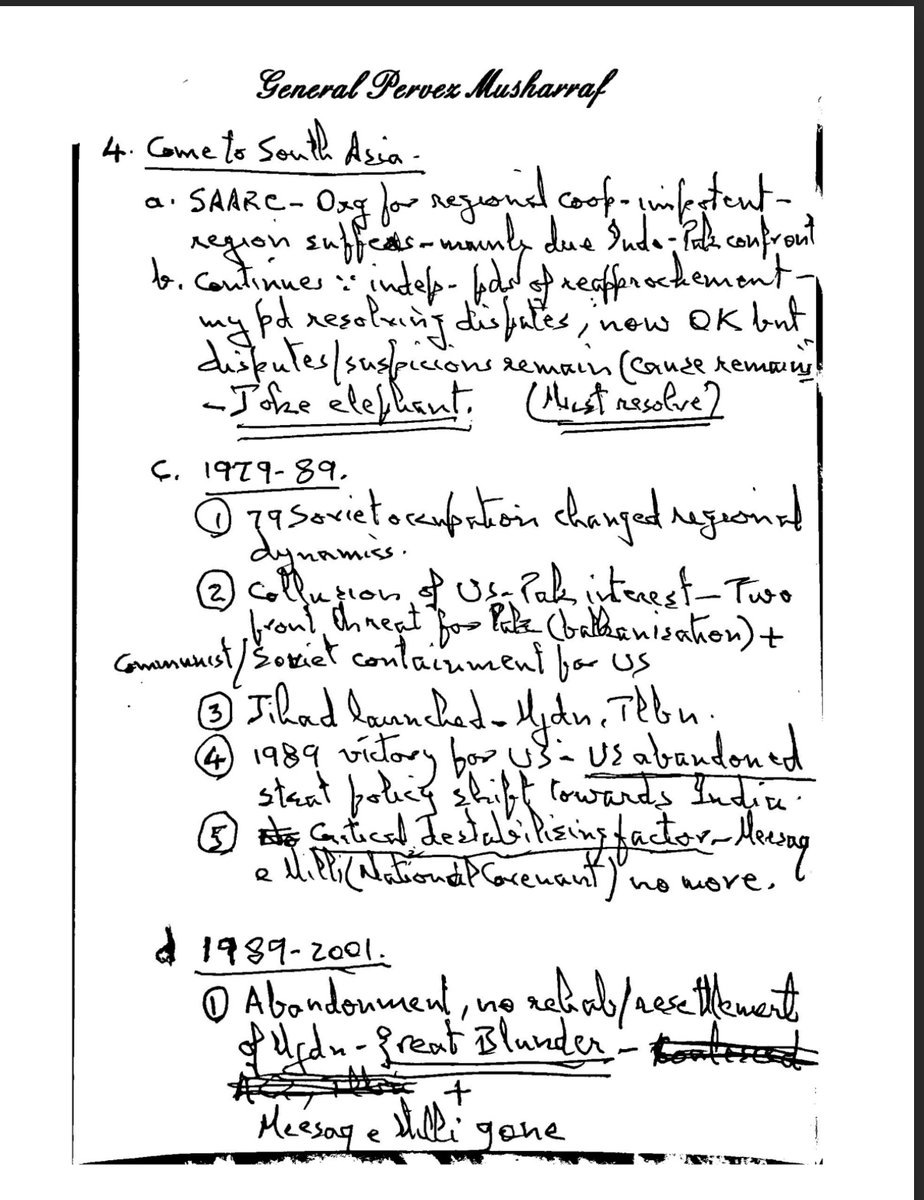 General Pervez Musharraf
4. Come to South Asia -
a. SAARC - Org for regional coop - impotent -
region suffers - mainly due Indo-Pak confront
b. Continues ∵ indep - pds of reapprochement -
my pd resolving disputes, now OK but
disputes/suspicions remain (cause remains
- Joke elephant. (Must resolve)
c. 1979-89.
① 79 Soviet occupation changed regional
dynamics.
② Collusion of US-Pak interest - Two
front threat for Pak (balkanisation) +
Communist/Soviet containment for US
③ Jihad launched - Mjdn, Tlbn.
④ 1989 victory for US - US abandoned
strat policy shift towards India.
⑤ Critical destabilising factor - Meesaq
e Milli (National Covenant) no more.
d 1989-2001.
① Abandonment, no rehab/resettlement
of Mjdn - Great Blunder -
+
Meesaq e Milli gone